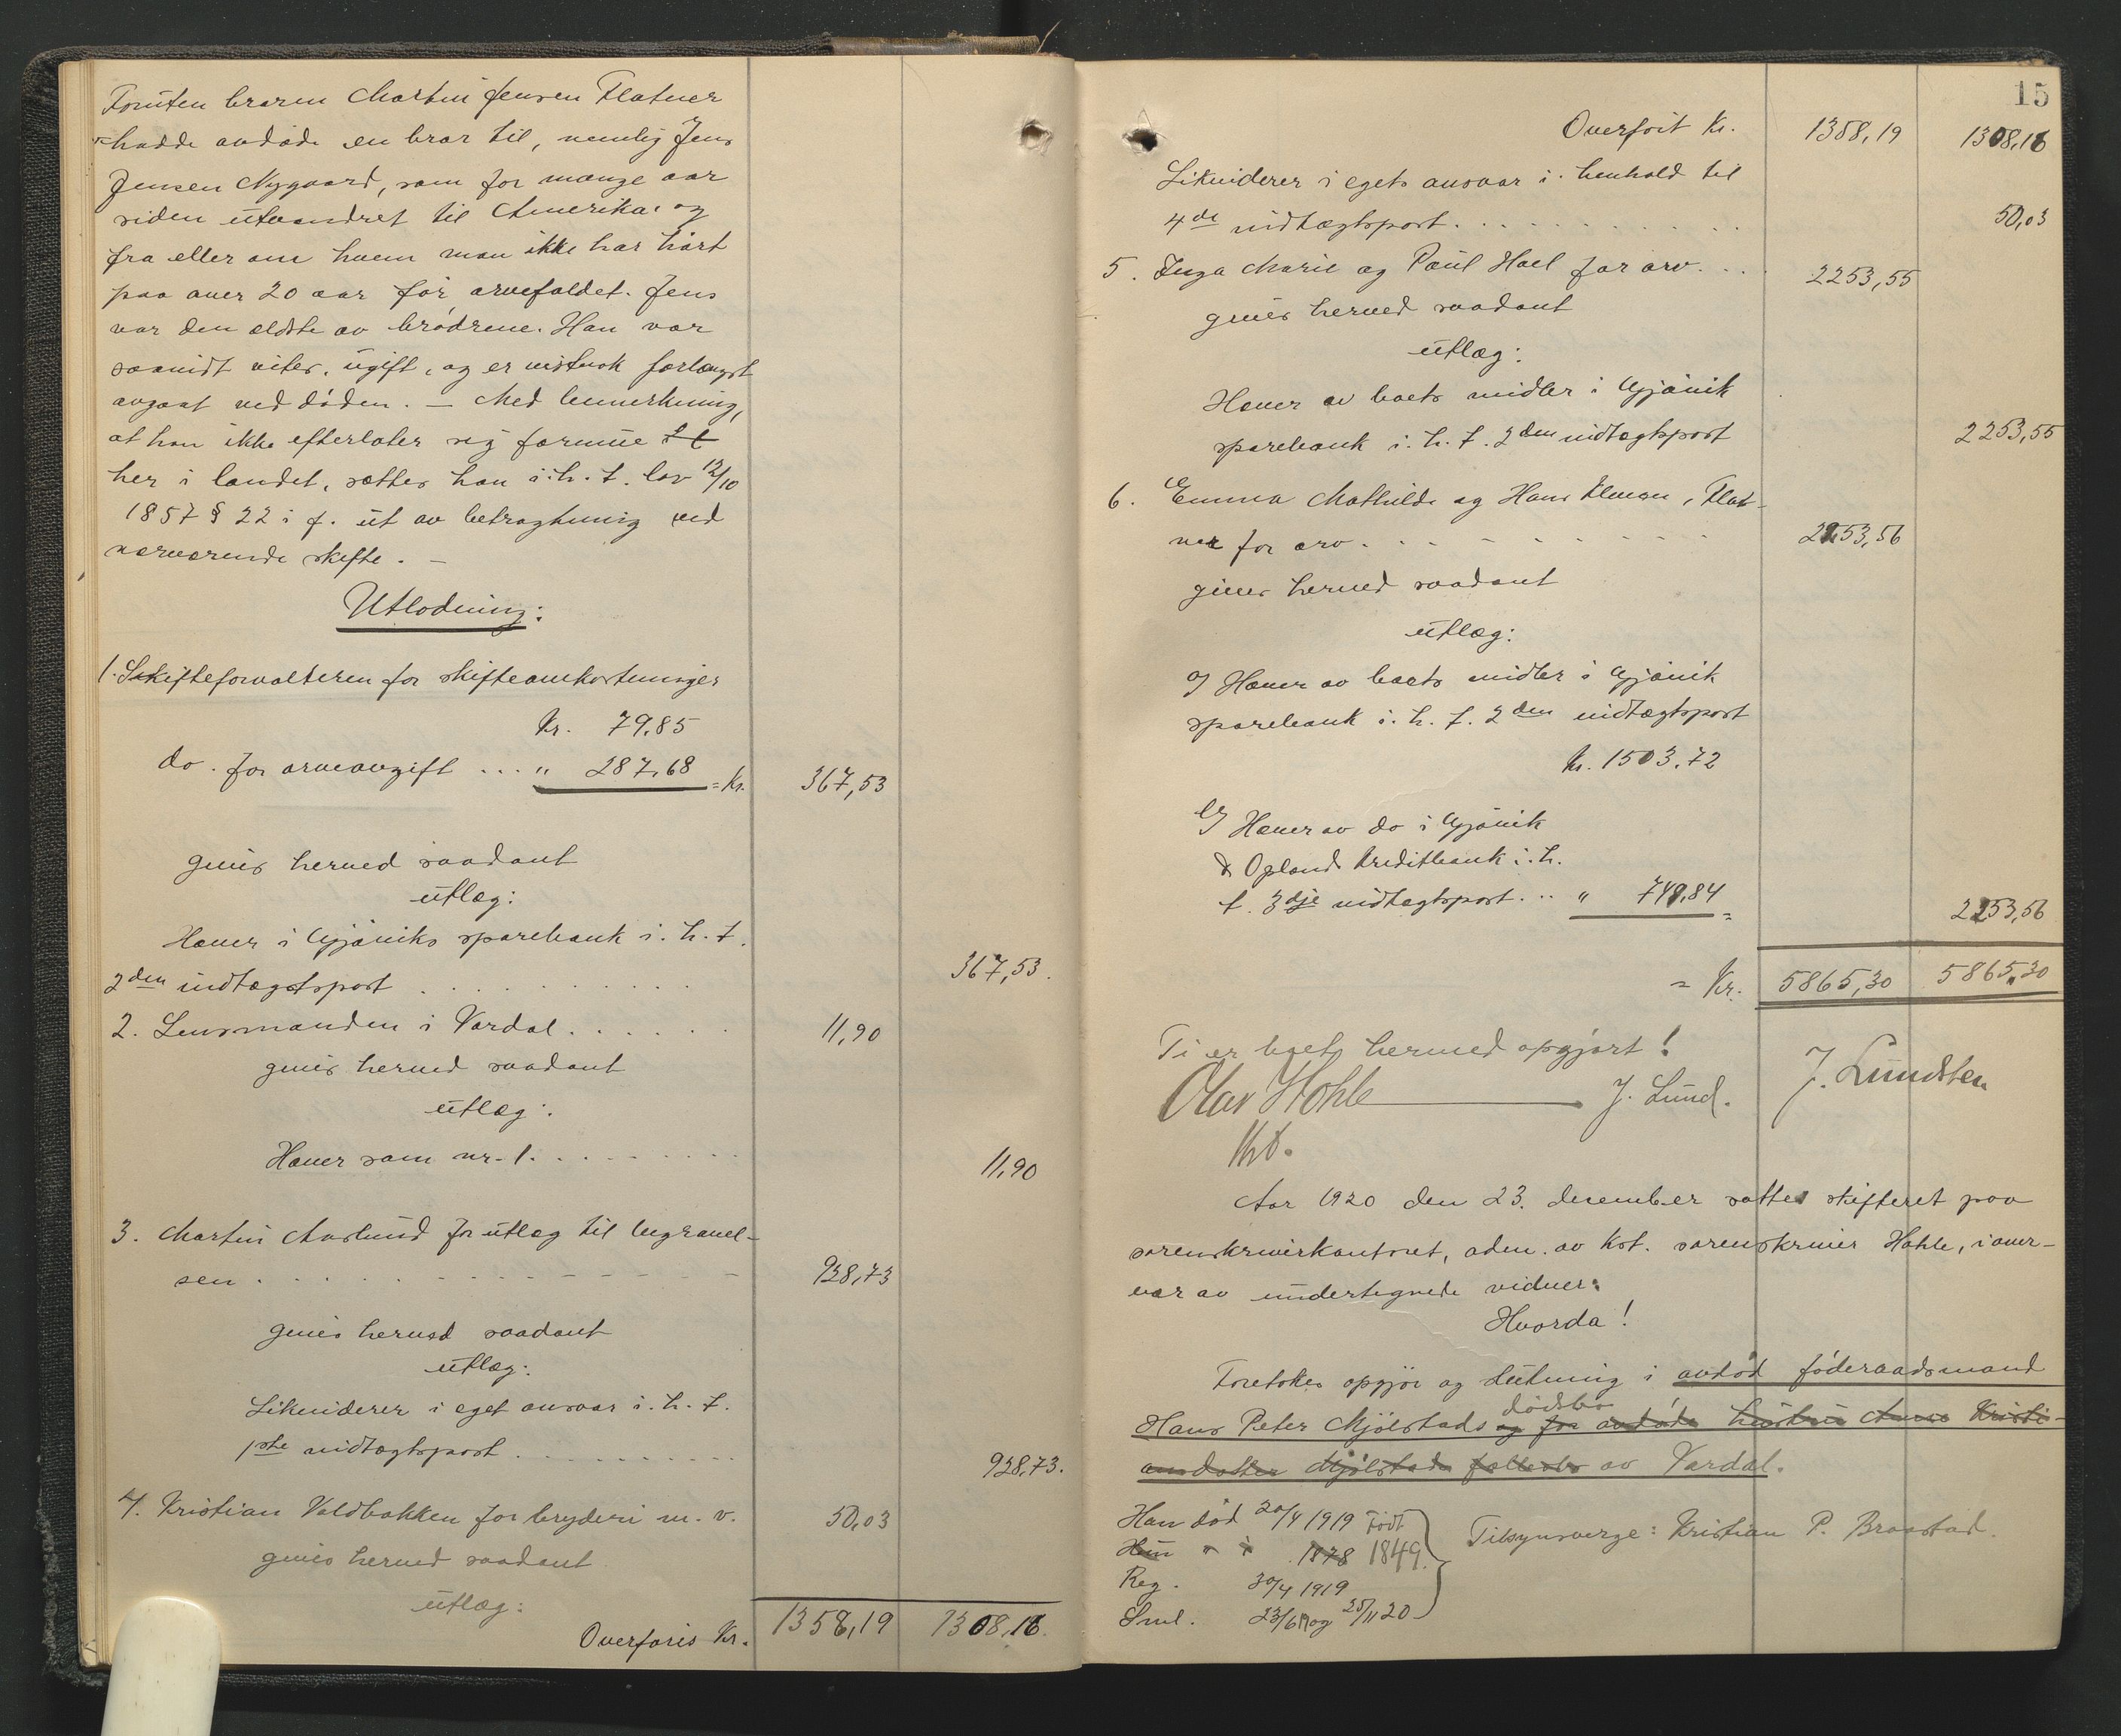 Foruten broren Martin Jensen Flatner
hadde avdøde en bror til, nemlig Jens
Jensen Nygaard, som for mange aar
siden utvandret til Amerika og
fra eller om hvem man ikke har hørt
paa over 20 aar før arvefaldet. Jens
var den ældste av brødrene. Han var
saavidt vites, ugift, og er vistnok forlængst
avgaat ved døden. — Med bemerkning,
at han ikke efterlater sig formue
her i landet, sættes han i. h. t. lov 12/10
1857 § 22 i f. ut av betragtning ved
nærværende skifte. —
Utlodning:
1. Skifteforvalteren for skifteomkostninger
Kr. 79,85
do. for arveavgift ... " 287,68 = Kr. 367,53
gives herved saadant
utlæg:
Hæver i Gjøviks sparebank i. h. t.
2den indtægtspost . . . . . . . 367,53.
2. Lensmanden i Vardal . . . . . . 11,90
gives herved saadant
utlæg:
Hæver som nr. 1. . . . . . . . 11,90
3. Martin Aaslund for utlæg til begravel-
sen . . . . . . . . . . 928,73
gives herved saadant
utlæg:
Likviderer i eget ansvar i. h. t.
1ste indtægtspost . . . . . . . . . . 928,73.
4. Kristian Voldbakken for bryderi m. v. 50,03
gives herved saadant
utlæg:
Overføres Kr. 1358,19 1308,16
15
Overført Kr. 1358,19 1308,16
Likviderer i egets ansvar i. henhold til
4de indtægtspost . . . . . . . . . . 50,03
5. Inga Marie og Paul Hoel for arv. . . 2253,55
gives herved saadant
utlæg:
Hæver av boets midler i Gjøvik
sparebank i. h. t. 2den indtægtspost 2253,55
6. Emma Mathilde og Hans Olsen, Flat-
ner for arv . . . . . . . . . 2253,56
gives herved saadant
utlæg:
a) Hæver av boets midler i Gjøvik
sparebank i. h. t. 2den indtægtspost
kr. 1503,72
b) Hæver av do i Gjøvik
& Opland Kreditbank i. h.
t. 3dje indtægtspost . . " 749,84 = 2253,56
= Kr. 5865,30 5865,30
Ti er boets hermed opgjørt!
Olav Hohle J. Lund. J. Lundsten
kst.
Aar 1920 den 23. desember sattes skifteret paa
sorenskriverkontoret, adm. av kst. sorenskriver Hohle, i over-
vær av undertegnede vidner.
Hvorda!
Foretokes opgjør og slutning i avdød føderaadsmand
dødsbo
Hans Peter Mjølstads og for avdøde hustru Anne Kristi-
ansdatter Mjølstads fællesbo av Vardal.
Han død 20/4 1919 Født
Hun " " 1878 1849. Tilsynsverge: Kristian P. Braastad.
Reg. 30/4 1919
Sml. 23/6 19 og 25/11 20